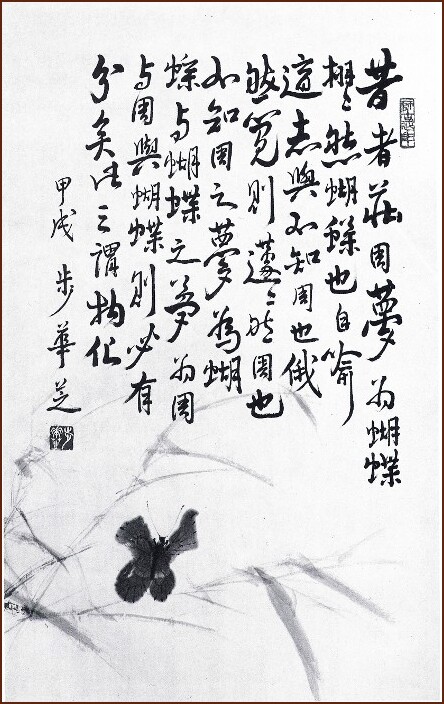 昔者莊周夢為蝴蝶
栩〻然蝴蝶也自喻
適志與不知周也俄
然覺則蘧〻然周也
不知周之夢為蝴
蝶与蝴蝶之夢為周
与周與蝴蝶則必有
分矣此之謂物化
甲戌 步華芝